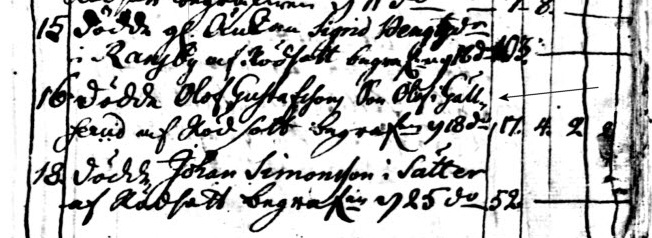 15 dödde gl. Änkan Sigrid Bengtzdr
i Ransby af Rödsått begrafn y 18 do 103.
16 dödde Olof Gustafsons Son Olof i Gäll-
serud af Rödsått begrafn y 18 do 17. 4. 2
18. dödde Johan Simonson i Sätter
af Rödsått begrafn y 25 do 52